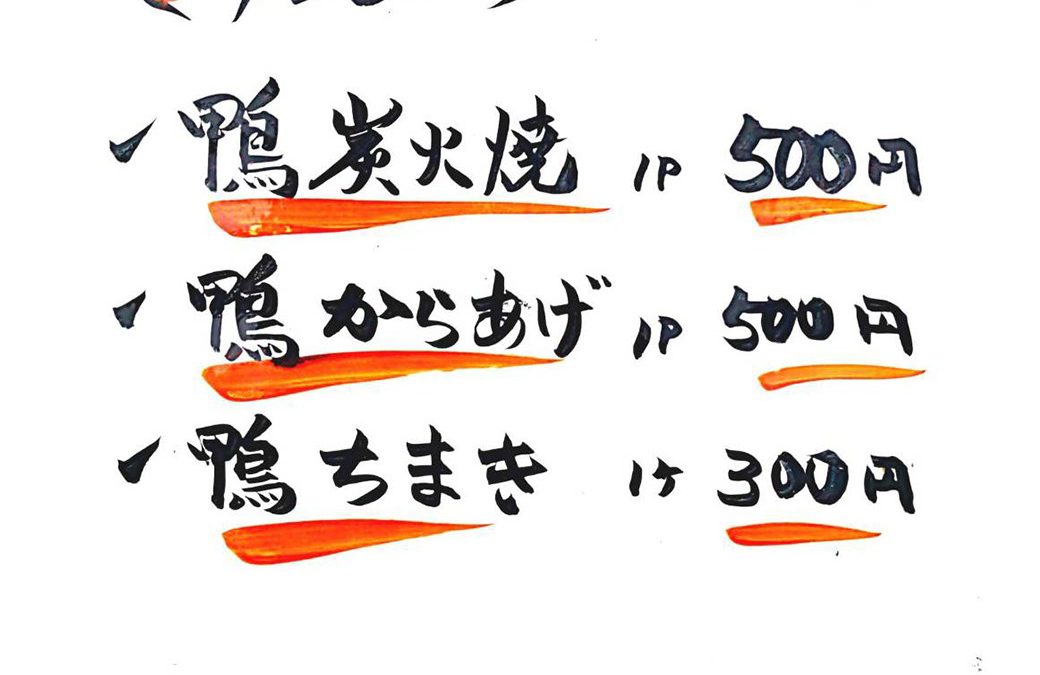 ✓ 鴨 炭火焼 1P 500円
✓ 鴨 からあげ 1P 500円
✓ 鴨 ちまき 1ケ 300円